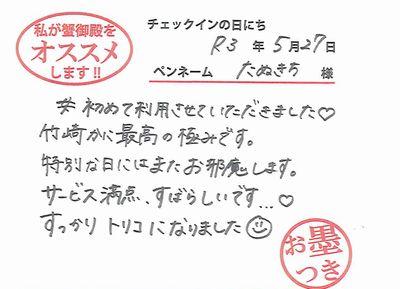 私が蟹御殿を
オススメ
します!!
チェックインの日にち
R3年5月27日
ペンネーム たぬきち 様
初めて利用させていただきました♡
竹崎かに最高の極みです。
特別な日にはまたお邪魔します。
サービス満点、すばらしいです…♡
すっかりトリコになりました☺
お墨
つき